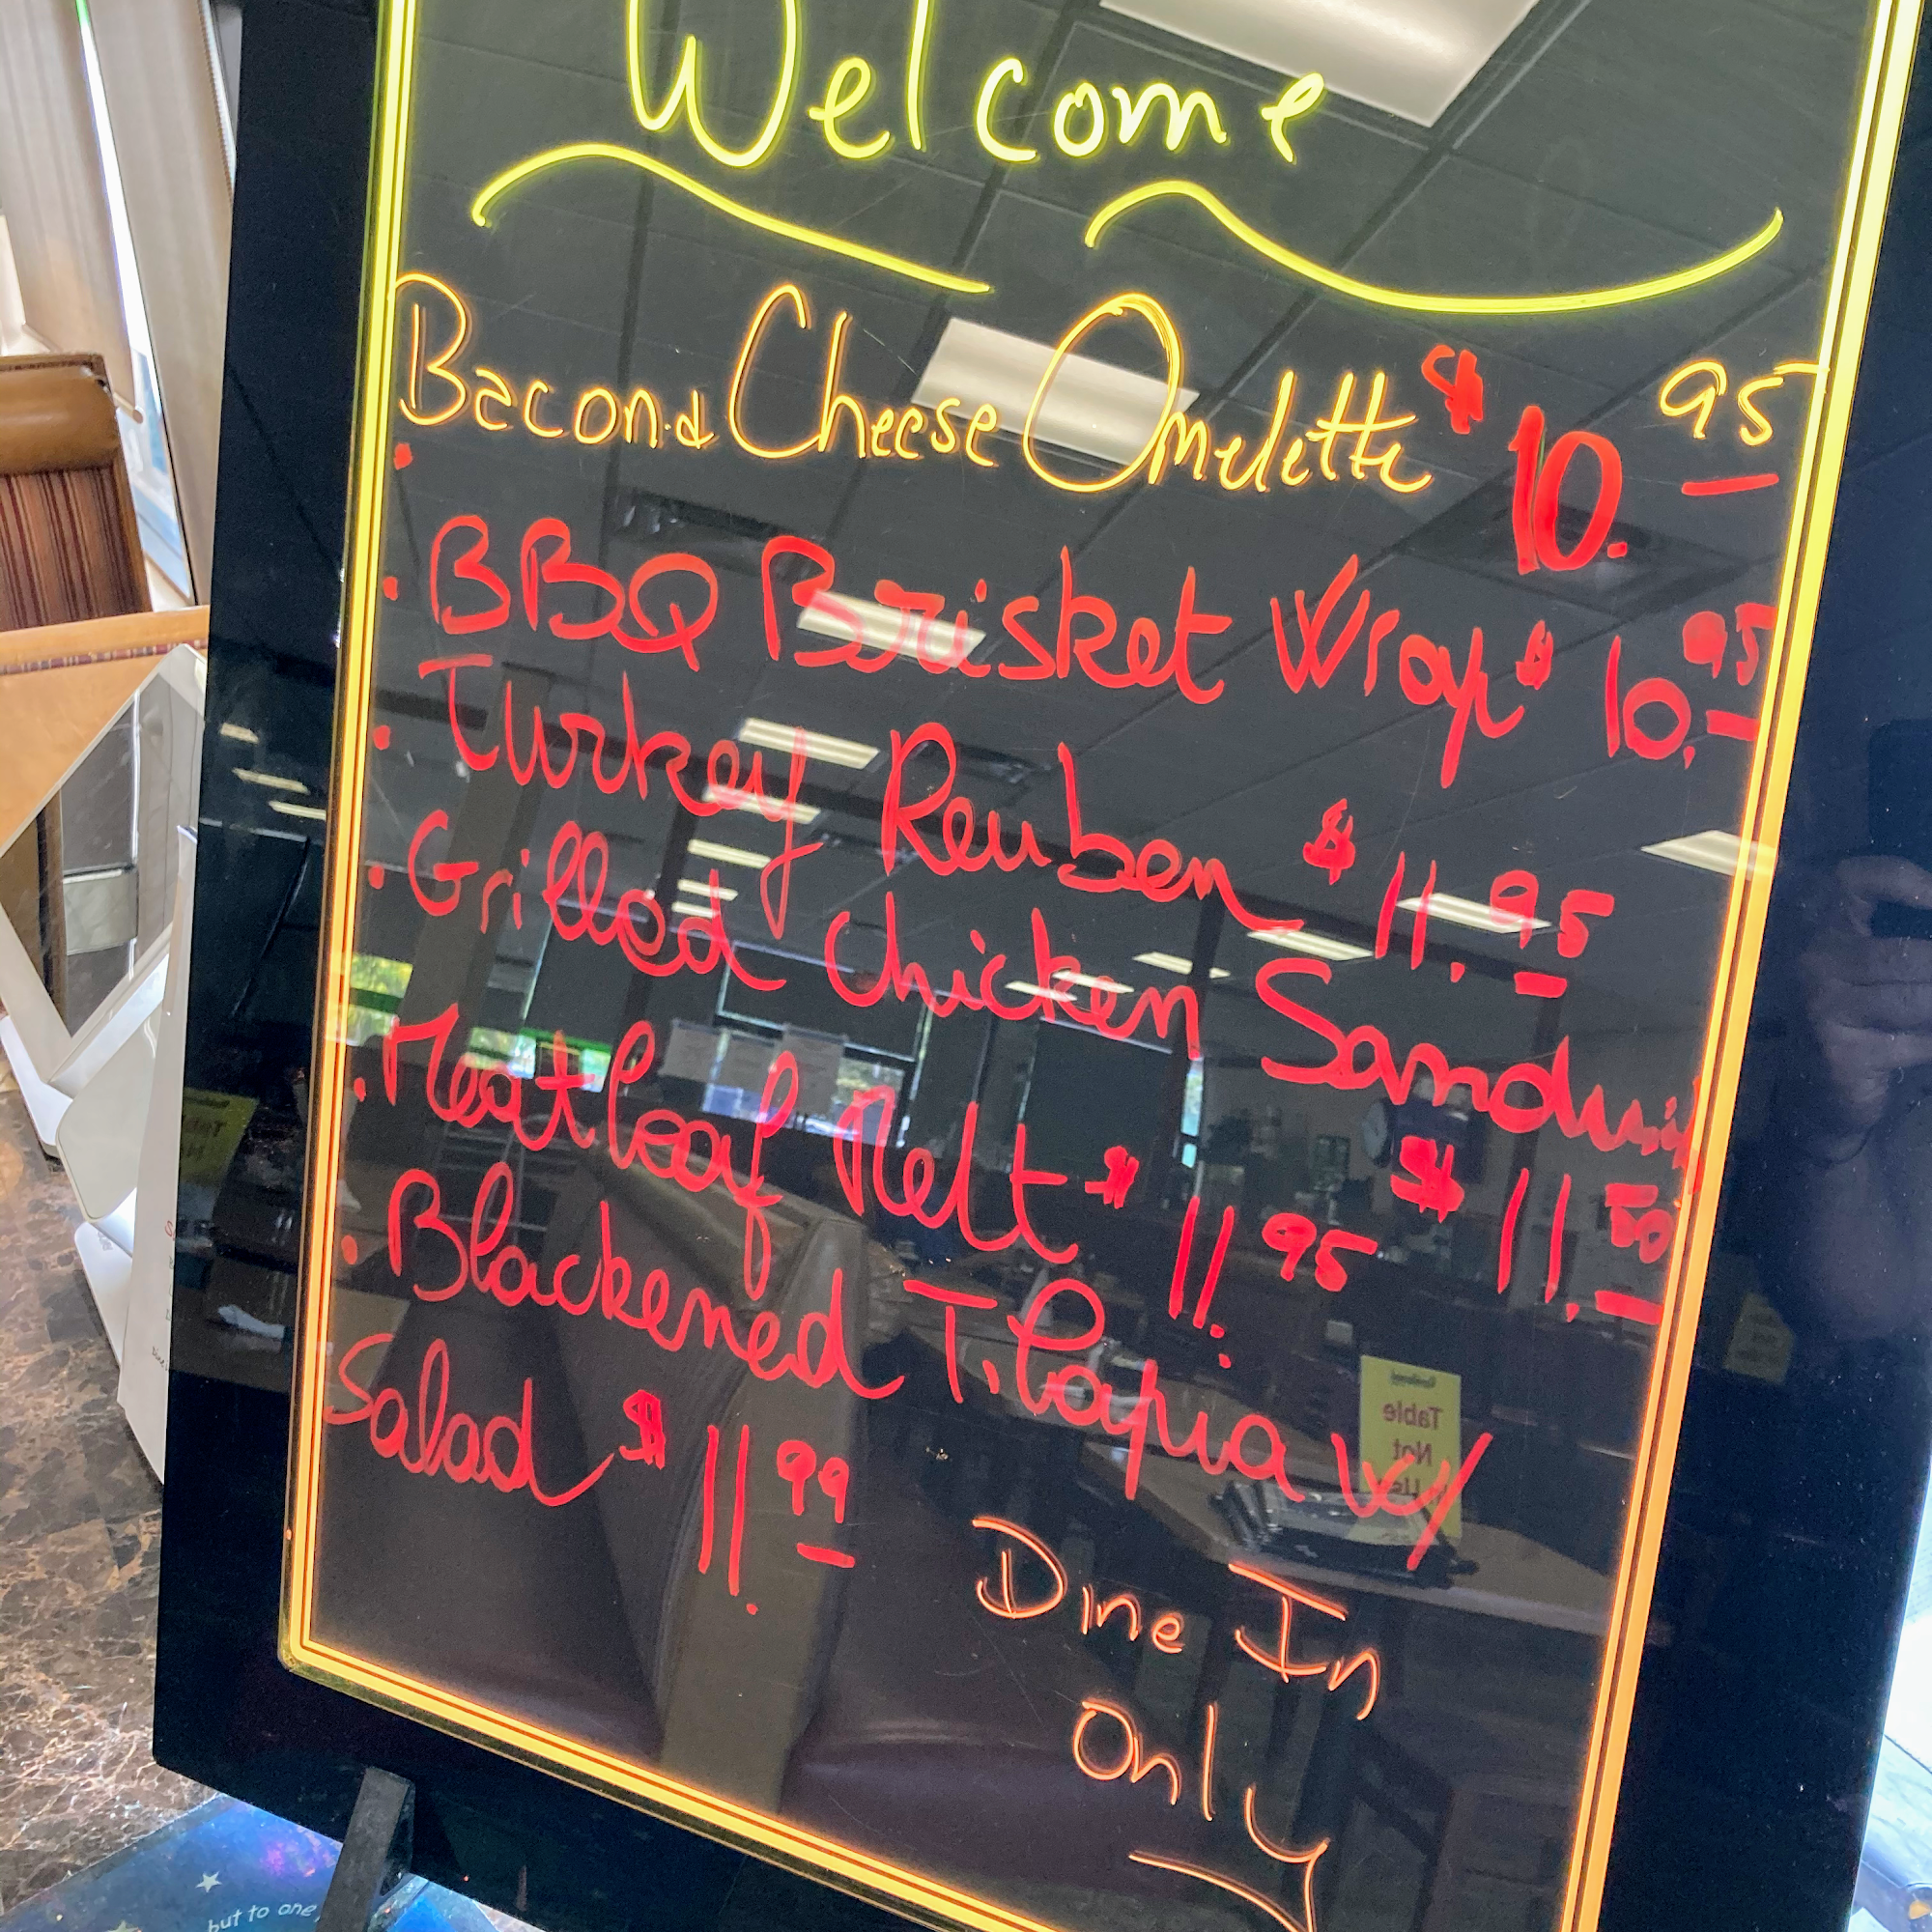 Welcome
Bacon & Cheese Omelette $10.95
· BBQ Brisket Wrap $10.95
· Turkey Reuben $11.95
· Grilled Chicken Sandwich
$11.50
· Meatloaf Melt $11.95
· Blackened Tilapia W/
Salad $11.99
Dine In
Only
Table
Not
but to one